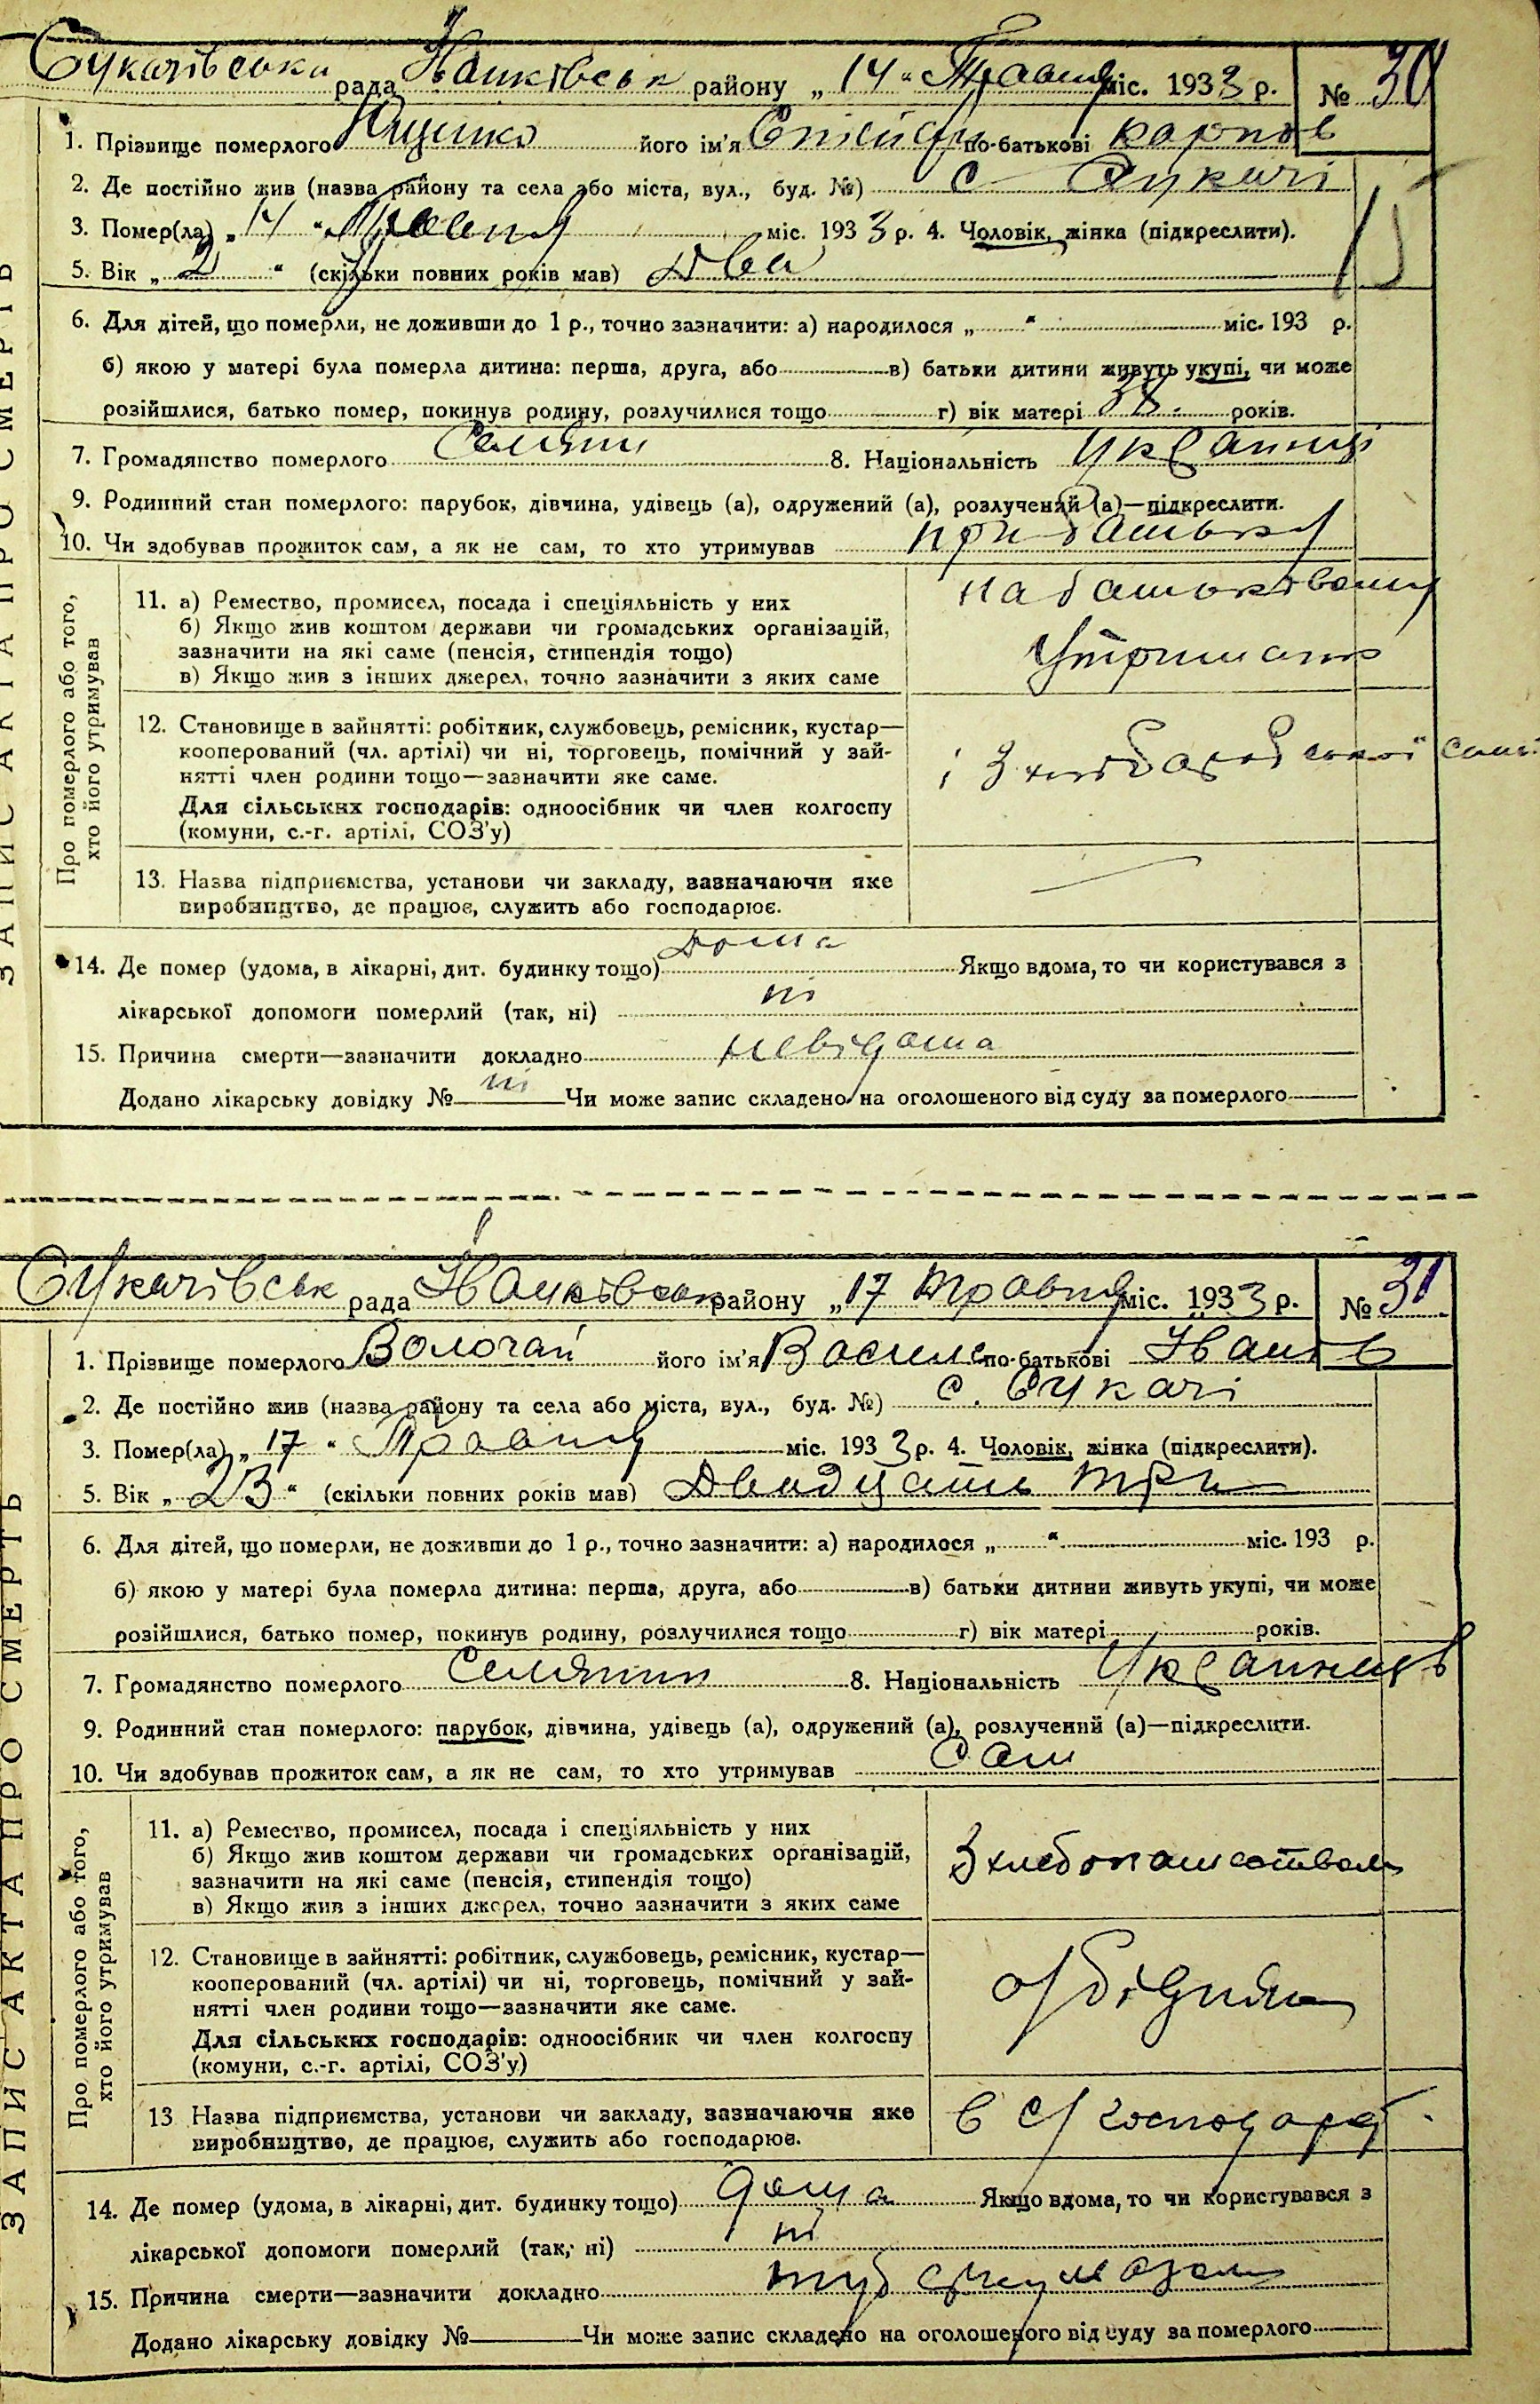 Сукачівська рада Іванківськ району „14“ Травня міс. 1933 р. № 30
1. Прізвище померлого його ім'я по-батькові Карпов
2. Де постійно жив (назва району та села або міста, вул., буд. №) с Сукачі
3. Помер(ла) „14“ Травня міс. 1933 р. 4. Чоловік, жінка (підкреслити).
5. Вік „2“ (скільки повних років мав) Два
6. Для дітей, що померли, не доживши до 1 р., точно зазначити: а) народилося „ “ міс. 193 р.
б) якою у матері була померла дитина: перша, друга, або в) батьки дитини живуть укупі, чи може
розійшлися, батько помер, покинув родину, розлучилися тощо г) вік матері 38. років.
7. Громадянство померлого Селянин 8. Національність Українець
9. Родинний стан померлого: парубок, дівчина, удівець (а), одружений (а), розлучений (а)—підкреслити.
10. Чи здобував прожиток сам, а як не сам, то хто утримував при батьку
ЗАПИС АКТА ПРО СМЕРТЬ
Про померлого або того,
хто його утримував
11. а) Ремество, промисел, посада і спеціяльність у них на батьківському
б) Якщо жив коштом держави чи громадських організацій,
зазначити на які саме (пенсія, стипендія тощо) утриманні
в) Якщо жив з інших джерел, точно зазначити з яких саме
12. Становище в зайнятті: робітник, службовець, ремісник, кустар—
кооперований (чл. артілі) чи ні, торговець, помічний у зай- і З хліборобської сім'ї
нятті член родини тощо—зазначити яке саме.
Для сільських господарів: одноосібник чи член колгоспу
(комуни, с.-г. артілі, СОЗ'у)
13. Назва підприємства, установи чи закладу, зазначаючи яке —
виробництво, де працює, служить або господарює.
14. Де помер (удома, в лікарні, дит. будинку тощо) Дома Якщо вдома, то чи користувався з
лікарської допомоги померлий (так, ні) ні
15. Причина смерти—зазначити докладно невідома
Додано лікарську довідку № ні Чи може запис складено на оголошеного від суду за померлого
Сукачівськ рада Іванківськ району „17 Травня міс. 1933 р. № 31
1. Прізвище померлого Волочай його ім'я Василь по-батькові Іванів
2. Де постійно жив (назва району та села або міста, вул., буд. №) с. Сукачі
3. Помер(ла) „17“ Травня міс. 1933 р. 4. Чоловік, жінка (підкреслити).
5. Вік „23“ (скільки повних років мав) Двадцать три
6. Для дітей, що померли, не доживши до 1 р., точно зазначити: а) народилося „ “ міс. 193 р.
б) якою у матері була померла дитина: перша, друга, або в) батьки дитини живуть укупі, чи може
розійшлися, батько помер, покинув родину, розлучилися тощо г) вік матері років.
7. Громадянство померлого Селянин 8. Національність Українець
9. Родинний стан померлого: парубок, дівчина, удівець (а), одружений (а), розлучений (а)—підкреслити.
10. Чи здобував прожиток сам, а як не сам, то хто утримував Сам
ЗАПИС АКТА ПРО СМЕРТЬ
Про померлого або того,
хто його утримував
11. а) Ремество, промисел, посада і спеціяльність у них
б) Якщо жив коштом держави чи громадських організацій,
зазначити на які саме (пенсія, стипендія тощо)
в) Якщо жив з інших джерел, точно зазначити з яких саме
12. Становище в зайнятті: робітник, службовець, ремісник, кустар—
кооперований (чл. артілі) чи ні, торговець, помічний у зай-
нятті член родини тощо—зазначити яке саме.
Для сільських господарів: одноосібник чи член колгоспу
(комуни, с.-г. артілі, СОЗ'у)
13 Назва підприємства, установи чи закладу, зазначаючи яке в с/господарст.
виробництво, де працює, служить або господарює.
14. Де помер (удома, в лікарні, дит. будинку тощо) дома Якщо вдома, то чи користувався з
лікарської допомоги померлий (так, ні) ні
15. Причина смерти—зазначити докладно туб
Додано лікарську довідку № Чи може запис складено на оголошеного від суду за померлого